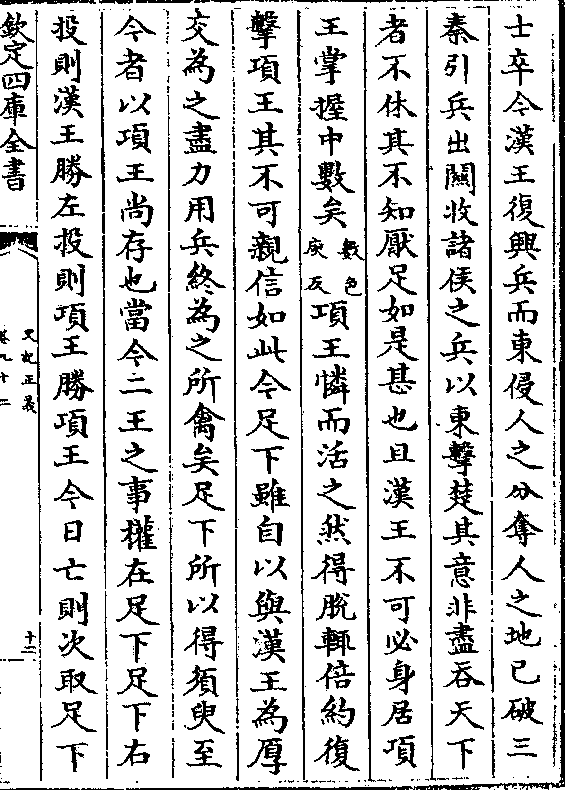 士卒今漢王復興兵而東侵人之分奪人之地已破三
秦引兵出關收諸侯之兵以東擊楚其意非盡吞天下
者不休其不知厭足如是甚也且漢王不可必身居項
王掌握中數矣數色庾反項王憐而活之然得脫輒倍約復
擊項王其不可親信如此今足下雖自以與漢王為厚
交為之盡力用兵終為之所禽矣足下所以得須臾至
今者以項王尚存也當今二王之事權在足下足下右
投則漢王勝左投則項王勝項王今日亡則次取足下
欽定四庫全書
史記正義
卷九十二
十二